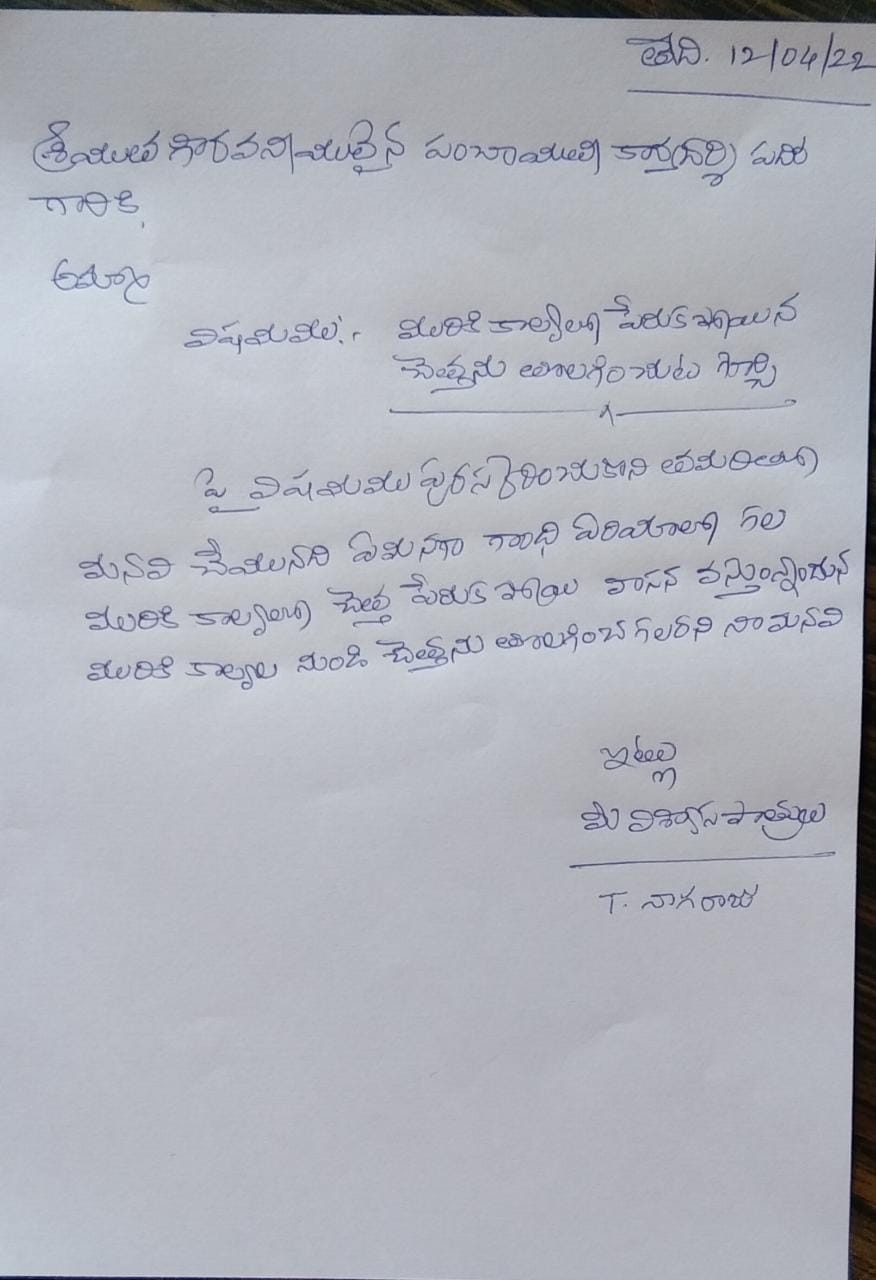 తేది. 12/04/22
శ్రీయుత గౌరవనీయులైన పంచాయితి కార్యదర్శి
గారికి,
అమ్మా
విషయము:- మురికి కాల్వలలో పేరుకపోయిన
చెత్తను తొలగించుట గూర్చి
పై విషయము పురస్కరించుకొని తమరితో
మనవి చేయునది ఏమనగా గాంధి ఏరియాలో గల
మురికి కాల్వలలో చెత్త పేరుక పోయి వాసన వస్తున్నందున
మురికి కాల్వల నుండి చెత్తను తొలగించగలరని నా మనవి
ఇట్లు
మీ విశ్వాసపాత్రులు
T. నాగరాజు